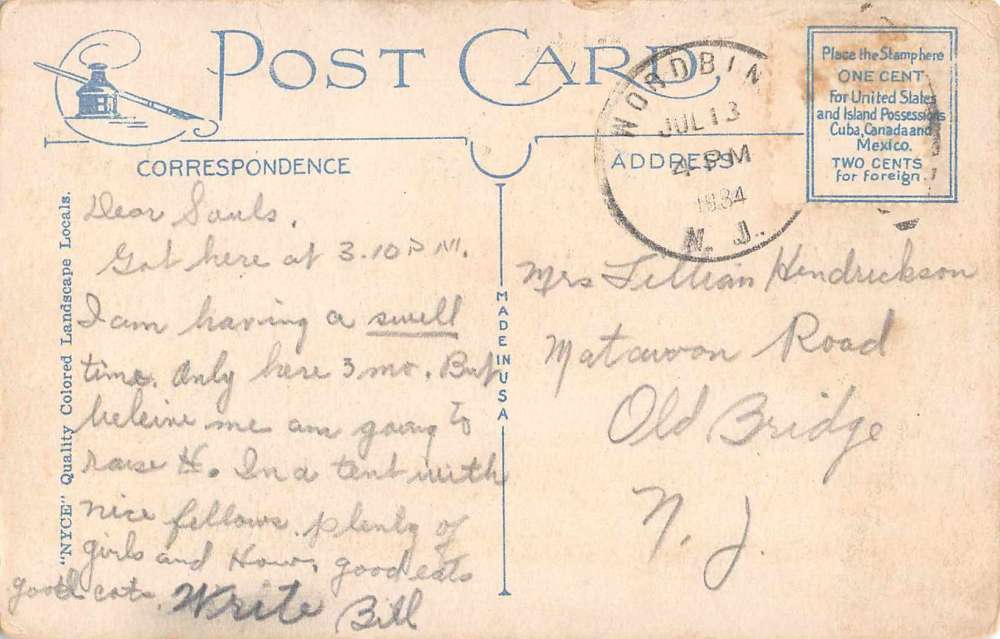 POST CARD
WOODBIN
JUL 13
4 PM
1934
N. J.
Place the Stamp here
ONE CENT
For United States
and Island Possessions
Cuba, Canada and
Mexico.
TWO CENTS
for Foreign.
CORRESPONDENCE
ADDRESS
"NYCE" Quality Colored Landscape Locals.
MADE IN U S A
Dear Souls,
Got here at 3.10 P M.
I am having a swell
time. Only here 3 mo. But
beleive me am going to
raise H. In a tent with
nice fellows plenty of
girls and How, good eats
good eats. Write Bill
Mrs Lillian Hendrickson
Matawon Road
Old Bridge
N. J.